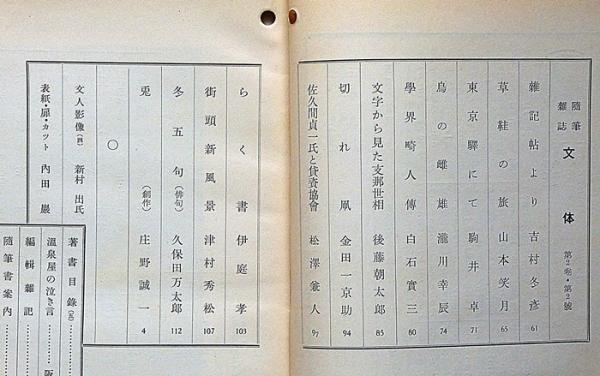 隨筆雜誌 文体 第2卷・第2號
雜記帖より 吉村冬彦 61
草鞋の旅 山本笑月 65
東京驛にて 駒井卓 71
鳥の雌雄 瀧川幸辰 74
學界畸人傳 白石實三 80
文字から見た支那世相 後藤朝太郎 85
切れ凧 金田一京助 94
佐久間貞一氏と貸資協會 松澤兼人 97
らく書 伊庭孝 103
街頭新風景 津村秀松 107
冬五句(俳句) 久保田万太郎 112
兎(創作) 庄野誠一 4
○
文人影像(四) 新村出氏
表紙・扉・カツト 內田巖
著書目錄
溫泉屋の泣き言
編輯雜記
隨筆書案內